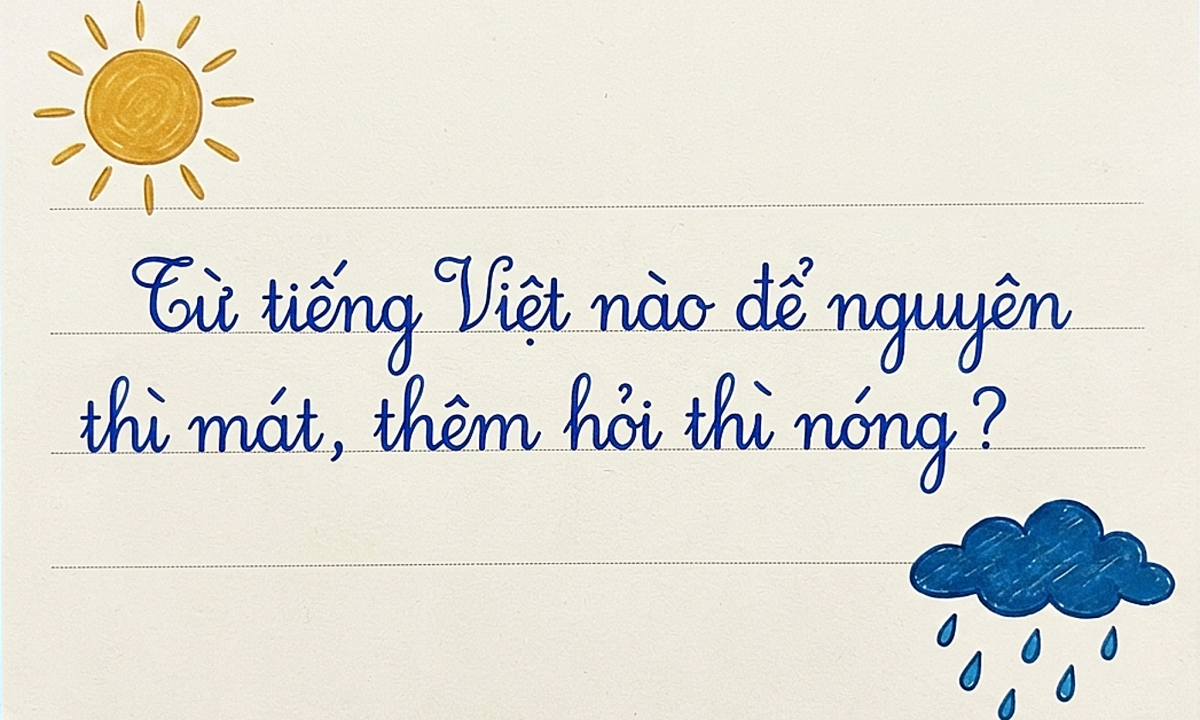 Từ tiếng Việt nào để nguyên
thì mát, thêm hỏi thì nóng?